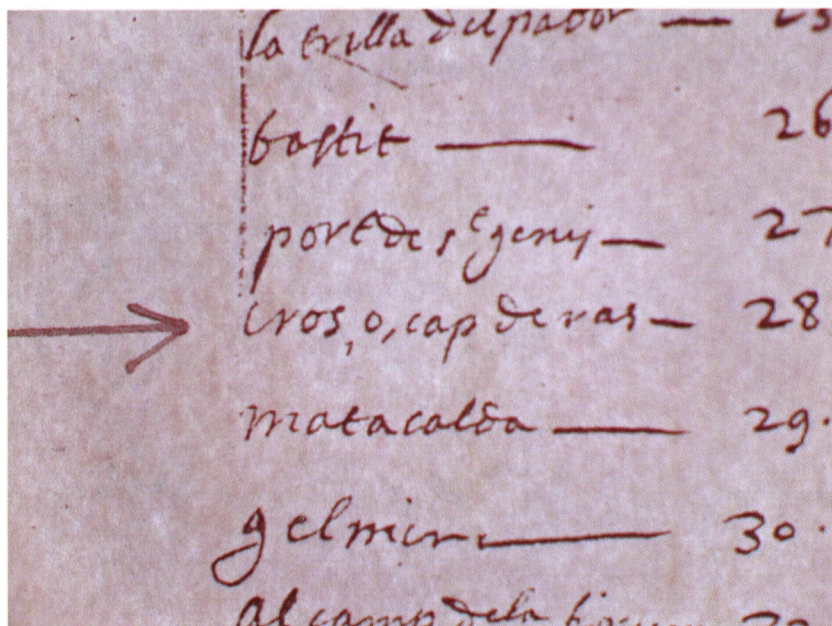 la trilla del pador — 25
bastit — 26
port de st genis — 27
cros, o, cap de ras — 28
matacalda — 29.
gelmir — 30.
al camp dela